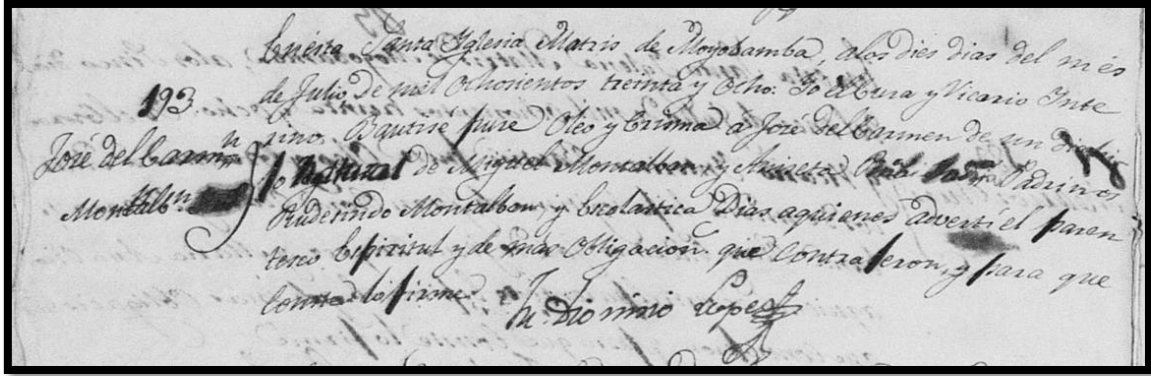 En esta Santa Iglesia Matris de Moyobamba, a los dies dias del mes
de Julio de mil ochosientos treinta y ocho: Yo el Cura y Vicario Inte
rino, Bautisé puse Oleo y Crisma a José del Carmen de un dia hij
o Natural de Miguel Montalban y Padrinos
Rudesindo Montalban, y Escolastica Dias aquienes advertí el paren
tesco Espiritul y de mas Obligacion que Contrajeron, y para que
Conste lo firmé
Dionicio Lopez
193
José del Carmn
Montalbn